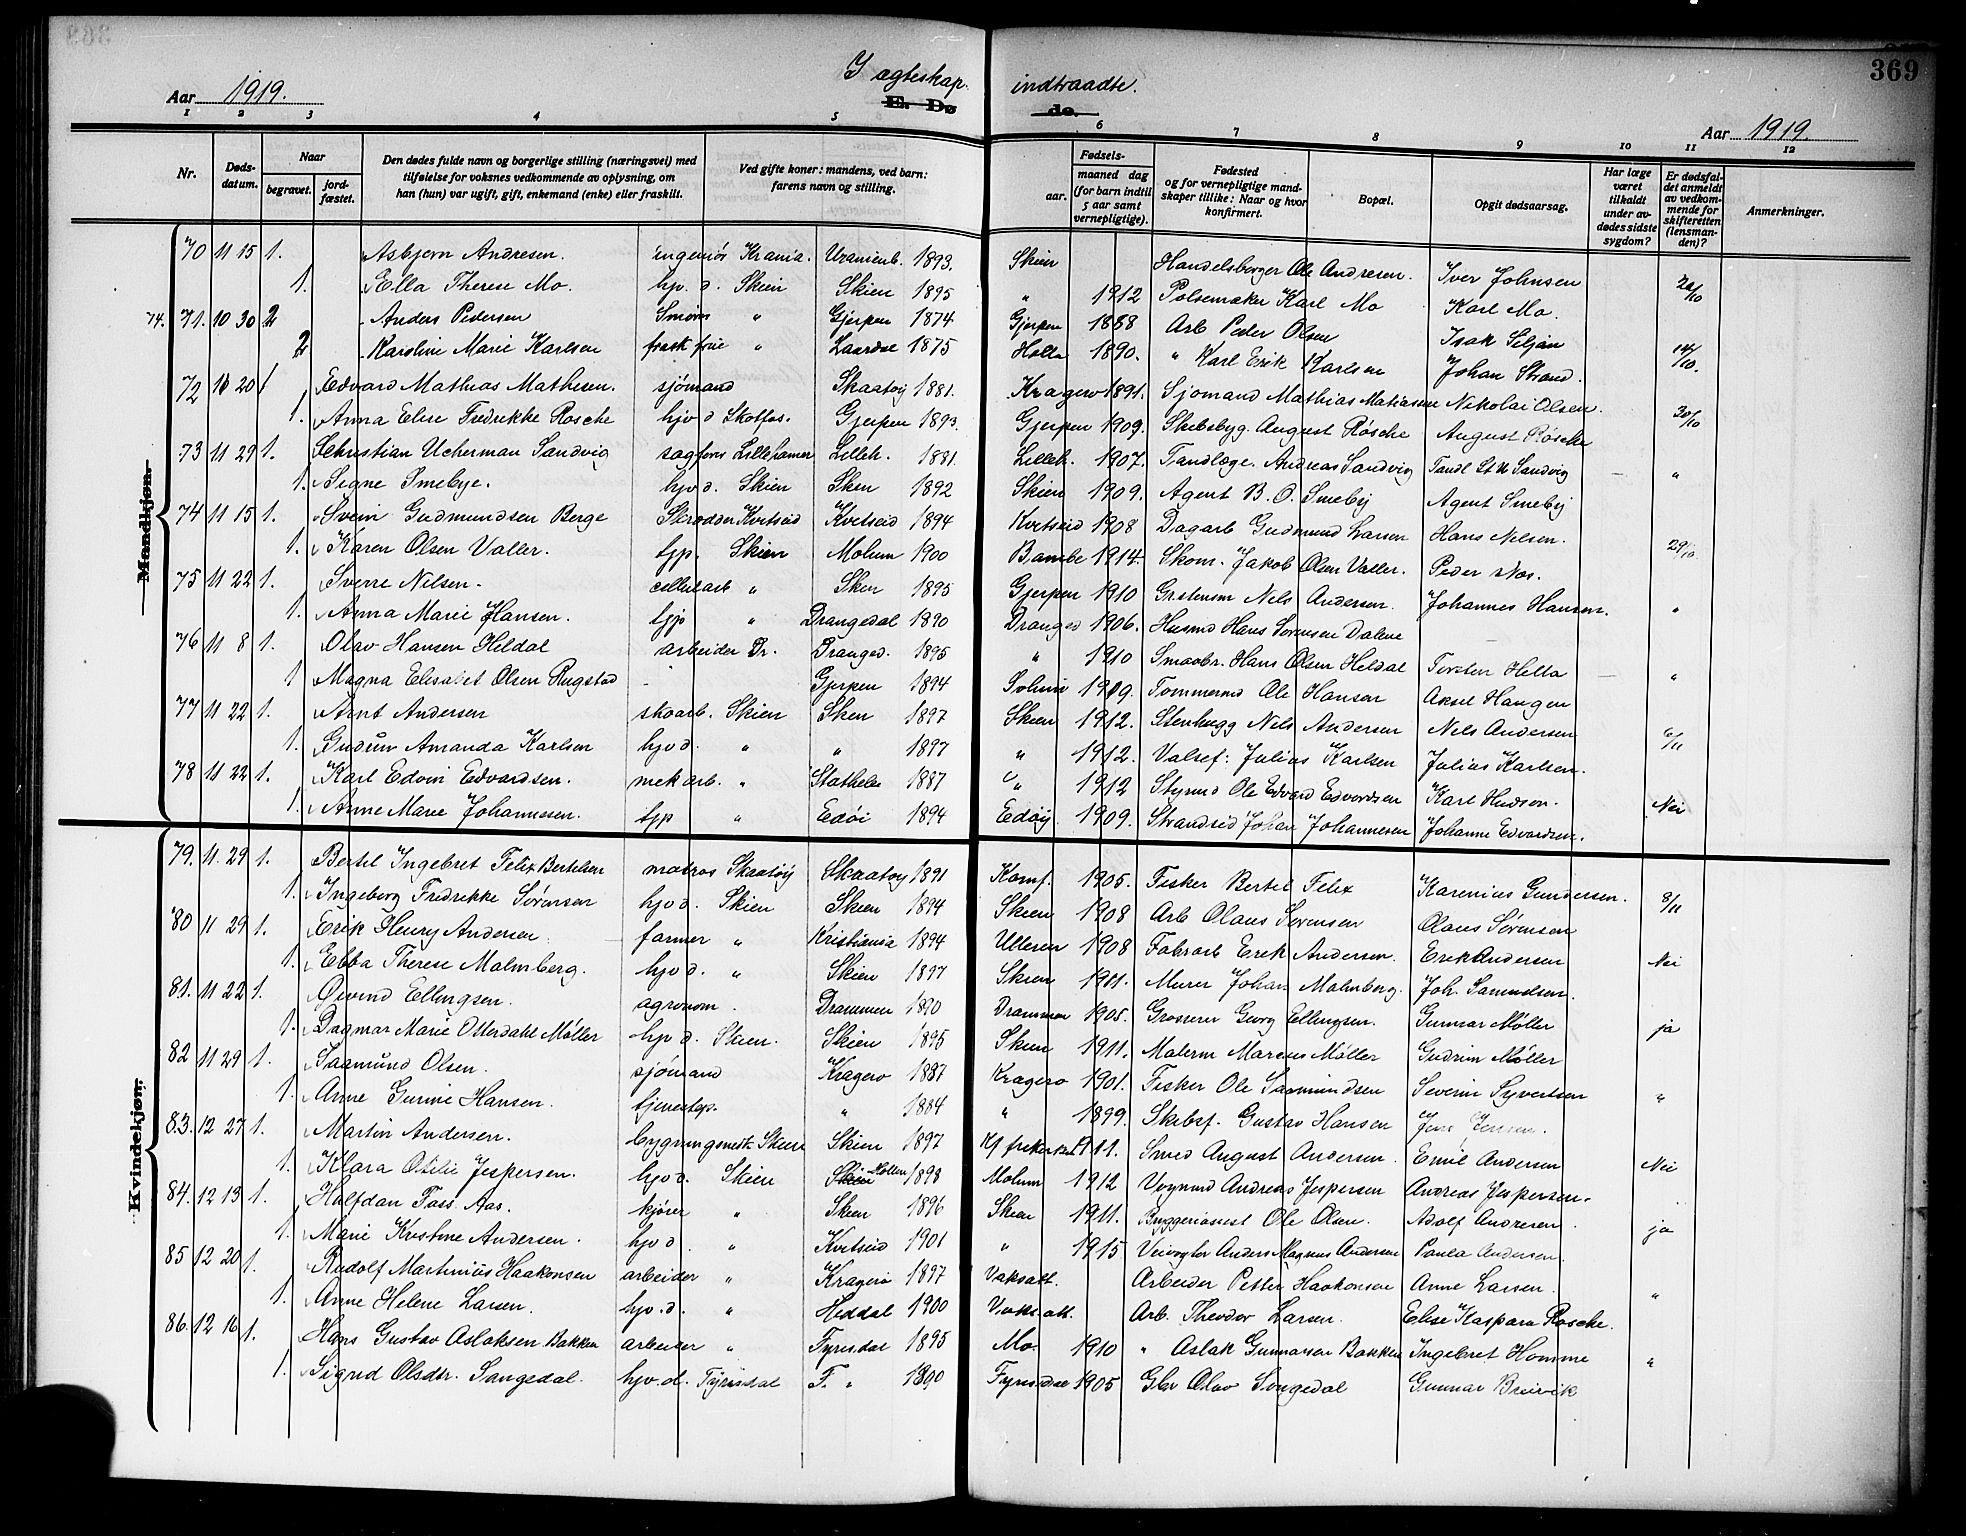 369
I ægteskap indtraadte.
Aar 1919.
E. Dø de.
Aar 1919.
1 2 3 4 5 6 7 8 9 10 11 12
Nr.
Døds-datum.
Naar
begravet.
jord-fæstet.
Den dødes fulde navn og borgerlige stilling (næringsvei) med
tilføielse for voksnes vedkommende av oplysning, om
han (hun) var ugift, gift, enkemand (enke) eller fraskilt.
Ved gifte koner: mandens, ved barn:
farens navn og stilling.
Fødsels-
aar.
maaned dag
(for barn indtil
5 aar samt
vernepligtige).
Fødested
og for vernepligtige mand-
skaper tillike: Naar og hvor
konfirmert.
Bopæl.
Opgit dødsaarsag.
Har læge
været
tilkaldt
under av-
dødes sidste
sygdom?
Er dødsfal-
det anmeldt
av vedkom-
mende for
skifteretten
(lensman-
den)?
Anmerkninger.
Mandkjøn.
70 11 15 1. Asbjørn Andresen. ingeniør Krania. Uranienb. 1893. Skien Handelsborger Ole Andresen. Iver Johnsen
1. Ella Therese Mo. hp. d. Skien Skien 1895 " 1912 Polsemaker Karl Mo Karl Mo. 20/10
74. 71. 10 30 2 Anders Pedersen Smørm " Gjerpen 1874 Gjerpen 1888 Arb Peder Olsen Isak Siljan
2 Karoline Marie Karlsen frask frue " Laardal 1875 Holla 1890. " Karl Erik Karlsen Johan Strand. 14/10.
72 10 20 1 Edvard Mathias Mathisen. sjømand Skaatøy 1881. Kragerø 1891. Sjømand Mathias Matiasen Nikolai Olsen.
1. Anna Elise Fredrikke Røsche hjv d Skotfos. Gjerpen 1893. Gjerpen 1909. Skibsbyg. August Røsche August Røsche 30/10
73 11 29 1. Christian Ucherman Sandvig sagførs Lillehamer Lilleh. 1881. Lilleh. 1907. Tandlæge. Andreas Sandvig Tandl St U Sandvig
1. Signe Smebye. hjv d. Skien Skien 1892 Skien 1909. Agent B. O. Smeby Agent Smeby "
74 11 15 1. Svein Gudmundsen Berge Skrædder Kvitseid Kvitseid 1894 Kvitseid 1908 Dagarb Gudmund Larsen Hans Nilsen.
1. Karen Olsen Valler. tjp. Skien Molum 1900 Bamble 1914. Skom. Jakob Olsen Valler. Peder Næs. 29/10
75 11 22 1. Sverre Nilsen. cellularb " Skien 1895 Gjerpen 1910 Nels Andersen. Johannes Hansen.
1. Anna Marie Hansen. tjp " Drangedal 1890 Dranged 1906. Husmd Hans Sørensen Dalene "
76 11 8 1. Olav Hansen Heldal arbeider Dr. Dranged. 1895 " 1910 Smaabr. Hans Olsen Heldal Torsten Helta
1 Magna Elisabet Olsen Rugstad - Gjerpen 1894 Solum 1909. Tommermd Ole Hansen Aksel Haugen "
77 11 22 1. Arnt Andersen skoarb. Skien Skien 1897 Skien 1912. Stenhugg Nils Andersen Nels Andersen
1. Gudrun Amanda Karlsen hjv d. " " 1897 " 1912. Valsef. Julius Karlsen Julius Karlsen. 6/11
78 11 22 1. Karl Edvin Edvardsen. mek arb. " Stathelle 1887 " 1912 Styrmd Ole Edvard Edvardsen Karl Hudson.
1. Anne Marie Johannesen. tjp " Edøi 1894 Edøy. 1909. Strandsid Johan Johannesen Johanne Edvardsen. Nei
Kvindekjøn.
79. 11. 29 1. Bertel Ingebret Felix Bertelsen matros Skaatøy Skaatøy 1891 Konf. 1905. Fisker Bertel Felix Karenius Gundersen.
1. Ingeborg Fredrikke Sørensen hjv d. Skien Skien 1894 Skien 1908 Arb Olaus Sørensen Olaus Sørensen 8/11
80 11 29 1. Erik Henry Andersen farmer " Kristiania 1894 Ulleren 1908 Fabrarb Erik Andersen. Erik Andersen
1. Ebba Therese Malmberg. hjv d. " Skien 1897 Skien 1911. Murer Johan Malmberg. Joh. Samuelsen. Nei
81. 11 22 1. Øivind Ellingsen. agronom. Drammen 1890 Drammen 1905. Grosserer Georg Ellingsen. Gunnar Møller
1. Dagmar Marie Otterdahl Møller hjv d. Skien. Skien 1895 Skien 1911. Malerm Marcus Møller Gudrun Møller ja
82 11 29 1. Saamund Olsen. sjømand Kragerø 1887 Kragerø 1901. Fisker Ole Saamundsen Severin Syvertsen
1. Anne Gurine Hansen. tjenestep. " 1884 " 1899. Skibsf. Gustav Hansen Jens Jensen. "
83. 12 27 1. Martin Andersen. bygningsmedt. Skien Skien 1897 Kf frikirken 1911. Smed August Andersen Emil Andersen
1. Klara Otilie Jespersen. hjv d. Skien Skien Hollen 1898 Molum 1912 Vognmd Andreas Jespersen Andreas Jespersen. Nei
84. 12 13 1. Halfdan Foss. Aas. kjører " Skien 1896 Skien 1911. Ole Olsen. Adolf Andresen
1. Marie Kristine Andersen. hjv d. " Kvitseid 1901 " 1915 Veivogter Anders Magnus Andersen Paula Andersen ja
85 12 20 1. Rudolf Martinius Haakonsen arbeider " Kragerø 1897 Vaksatt. Arbeider Petter Haakonsen Anne Larsen.
1. Anne Helene Larsen. hjv. d. " Heddal 1900 Vaks. att. Arb. Theodor Larsen. Elise Kaspara Røsche. "
86. 12 16 1. Hans Gustav Aslaksen Bakken arbeider " Fyresdal 1895 Mo. 1910 " Aslak Gunnarsen Bakken Ingebret Homme
1. Sigrid Olsdtr. Sangedal. hjv. d. Fyrisdal F. " 1890 Fyresdal 1905 Gbr Olav Songedal Gunnar Breivik "